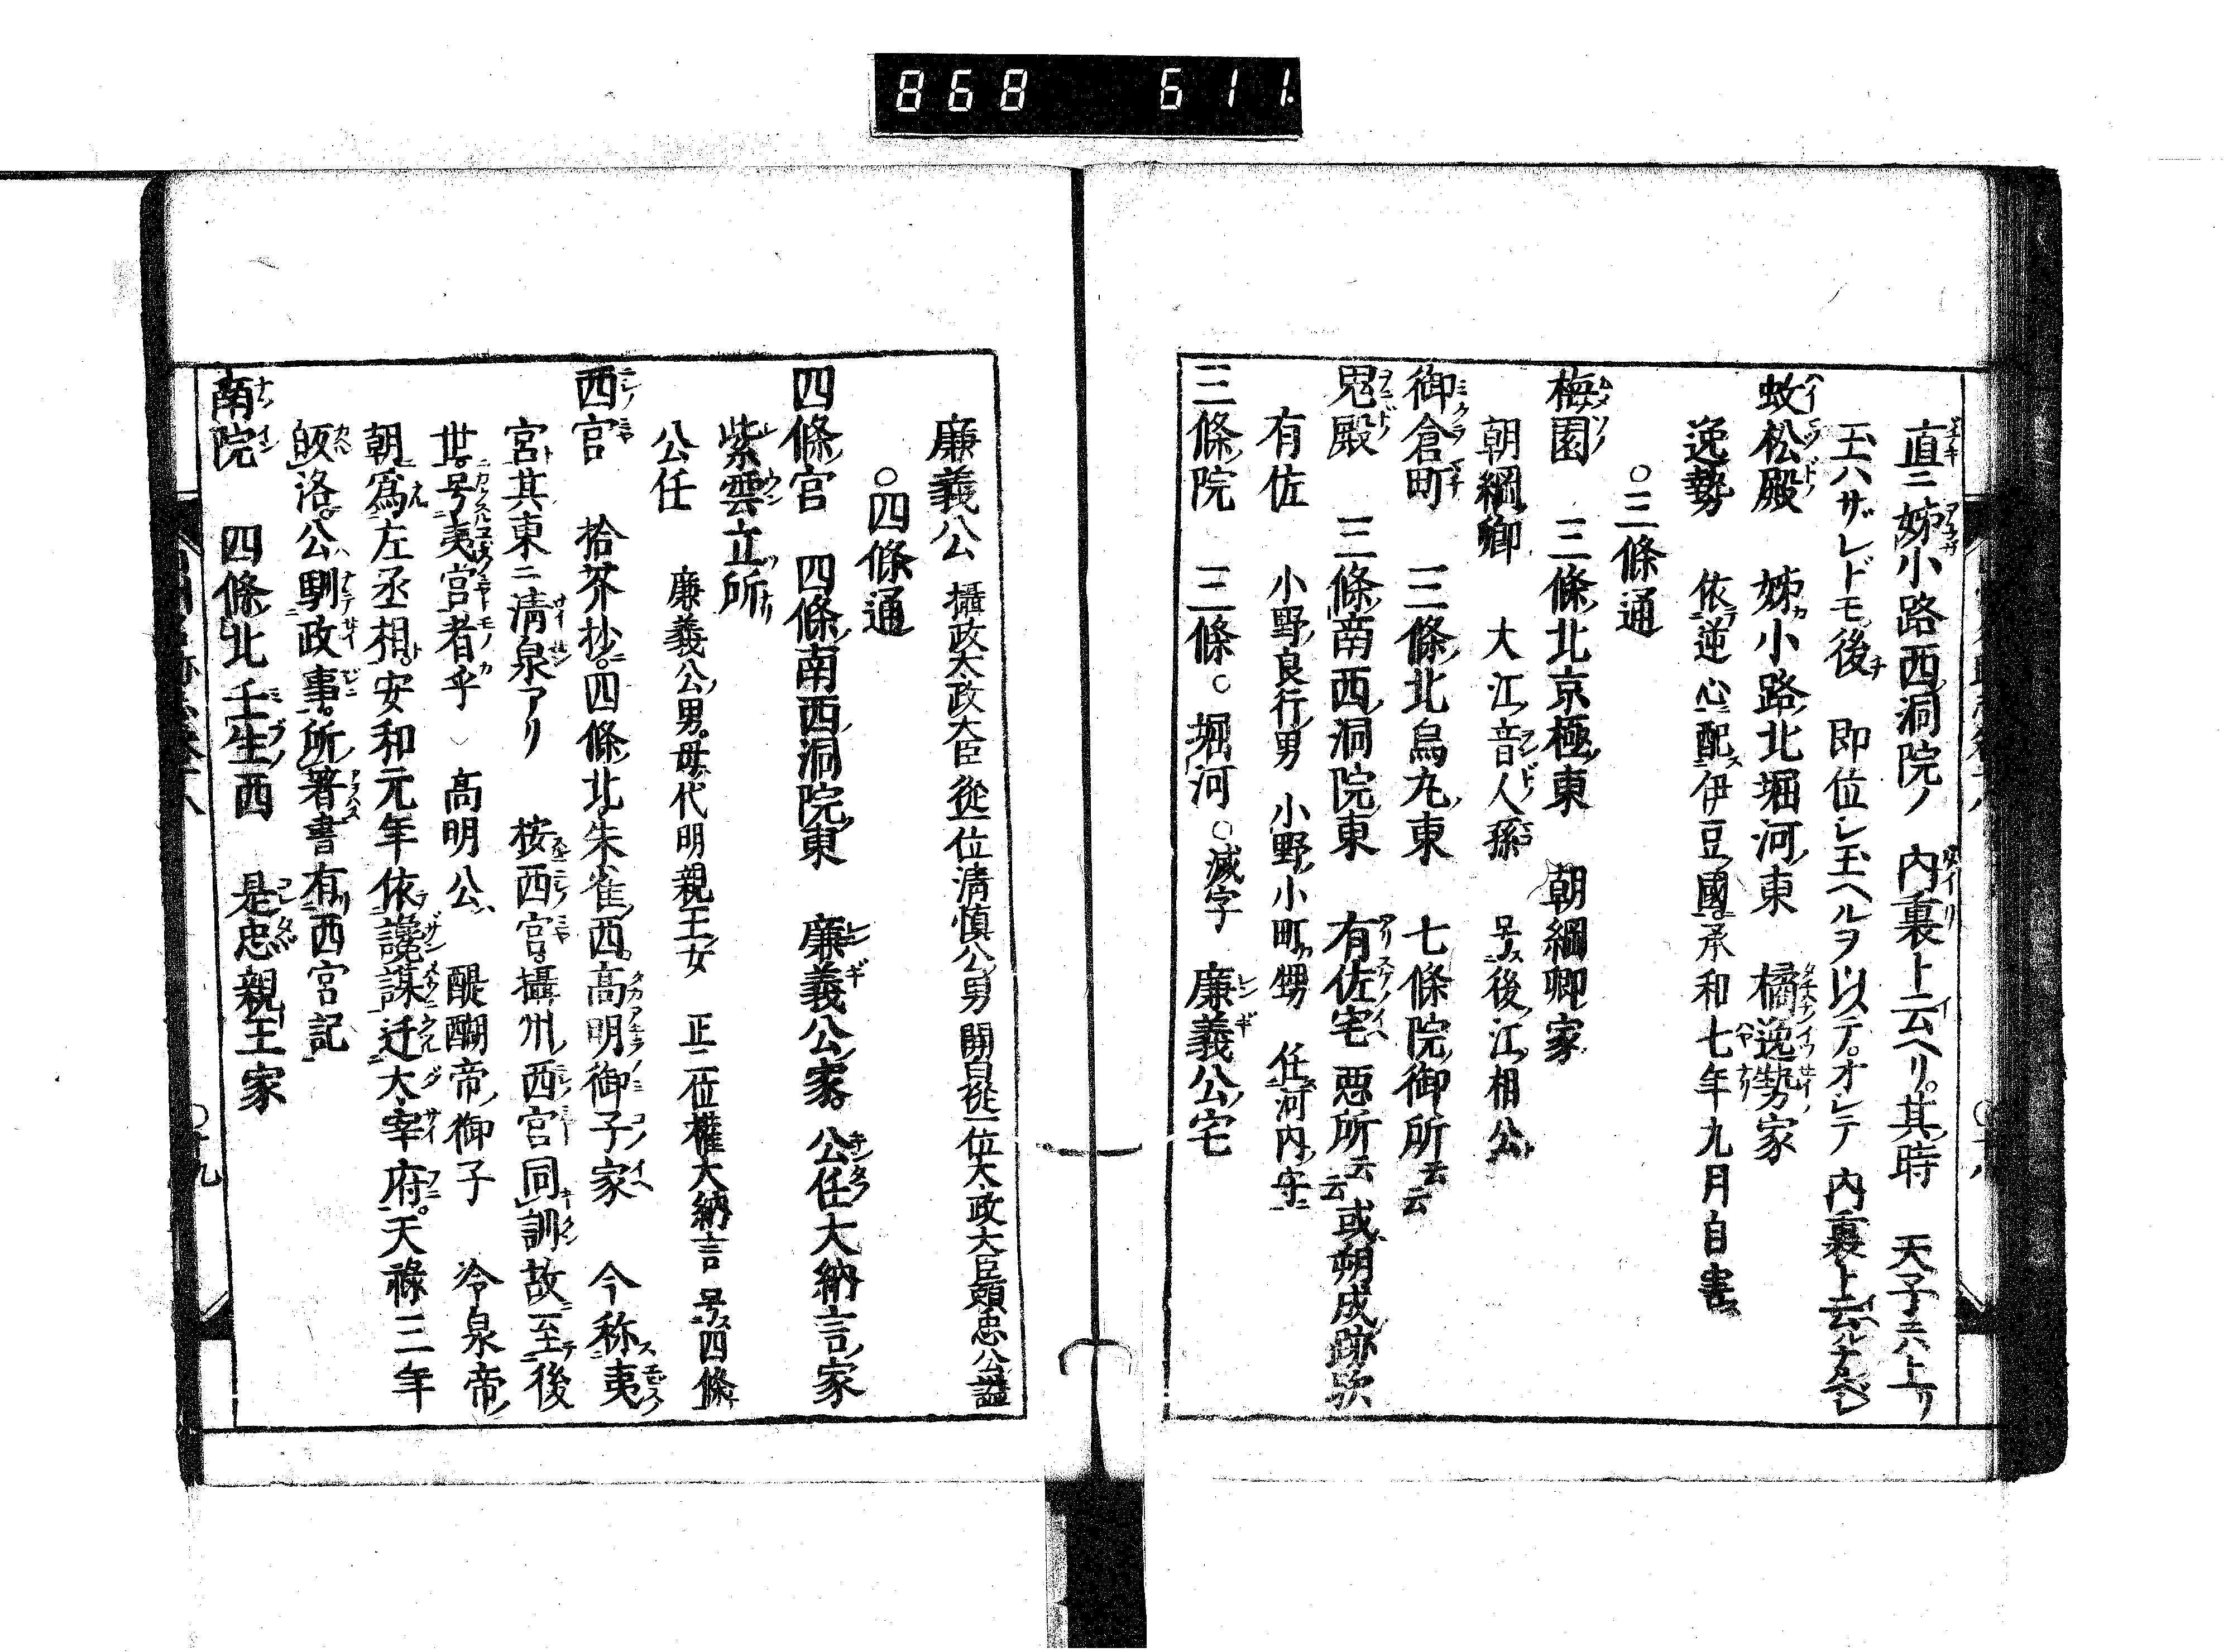 868 611.
直ニ姊小路西洞院ノ 内裏ト云ヘリ。其時 天子ニハ上リ
玉ハザレドモ後 即位シ玉ヘルヲ以テ。オシテ 内裏ト云ルナルベシ
蚊松殿 姊小路北堀河東 橘逸勢家
逸勢 依逆心配伊豆國。承和七年九月自害
○三條通
梅園 三條北京極東 朝綱卿家
朝綱卿 大江音人孫 号後江相公
御倉町 三條北烏丸東 七條院御所云云
鬼殿 三條南西洞院東 有佐宅 悪所云云或朔成跡歟
有佐 小野良行男 小野小町甥 任河内守
三條院 三條。堀河 ○滅字 廉義公宅
廉義公 攝政太政大臣 從一位清慎公男 関白從一位太政大臣頼忠公諡
○四條通
四條宮 四條南西洞院東 廉義公家。公任大納言家
紫雲立所
公任 廉義公男。母代明親王女 正二位權大納言 号四條
西宮 拾芥抄。四條北朱雀西。高明御子家 今称夷
宮其東ニ清泉アリ 桉西宮。攝州西宮同訓故至後
世。号夷宮者乎 高明公 醍醐帝御子 冷泉帝
朝爲左丞相。安和元年依讒謀迁太宰府。天祿三年
皈洛。公馴政事。所著書有西宮記
南院 四條北壬生西 是忠親王家
○十九